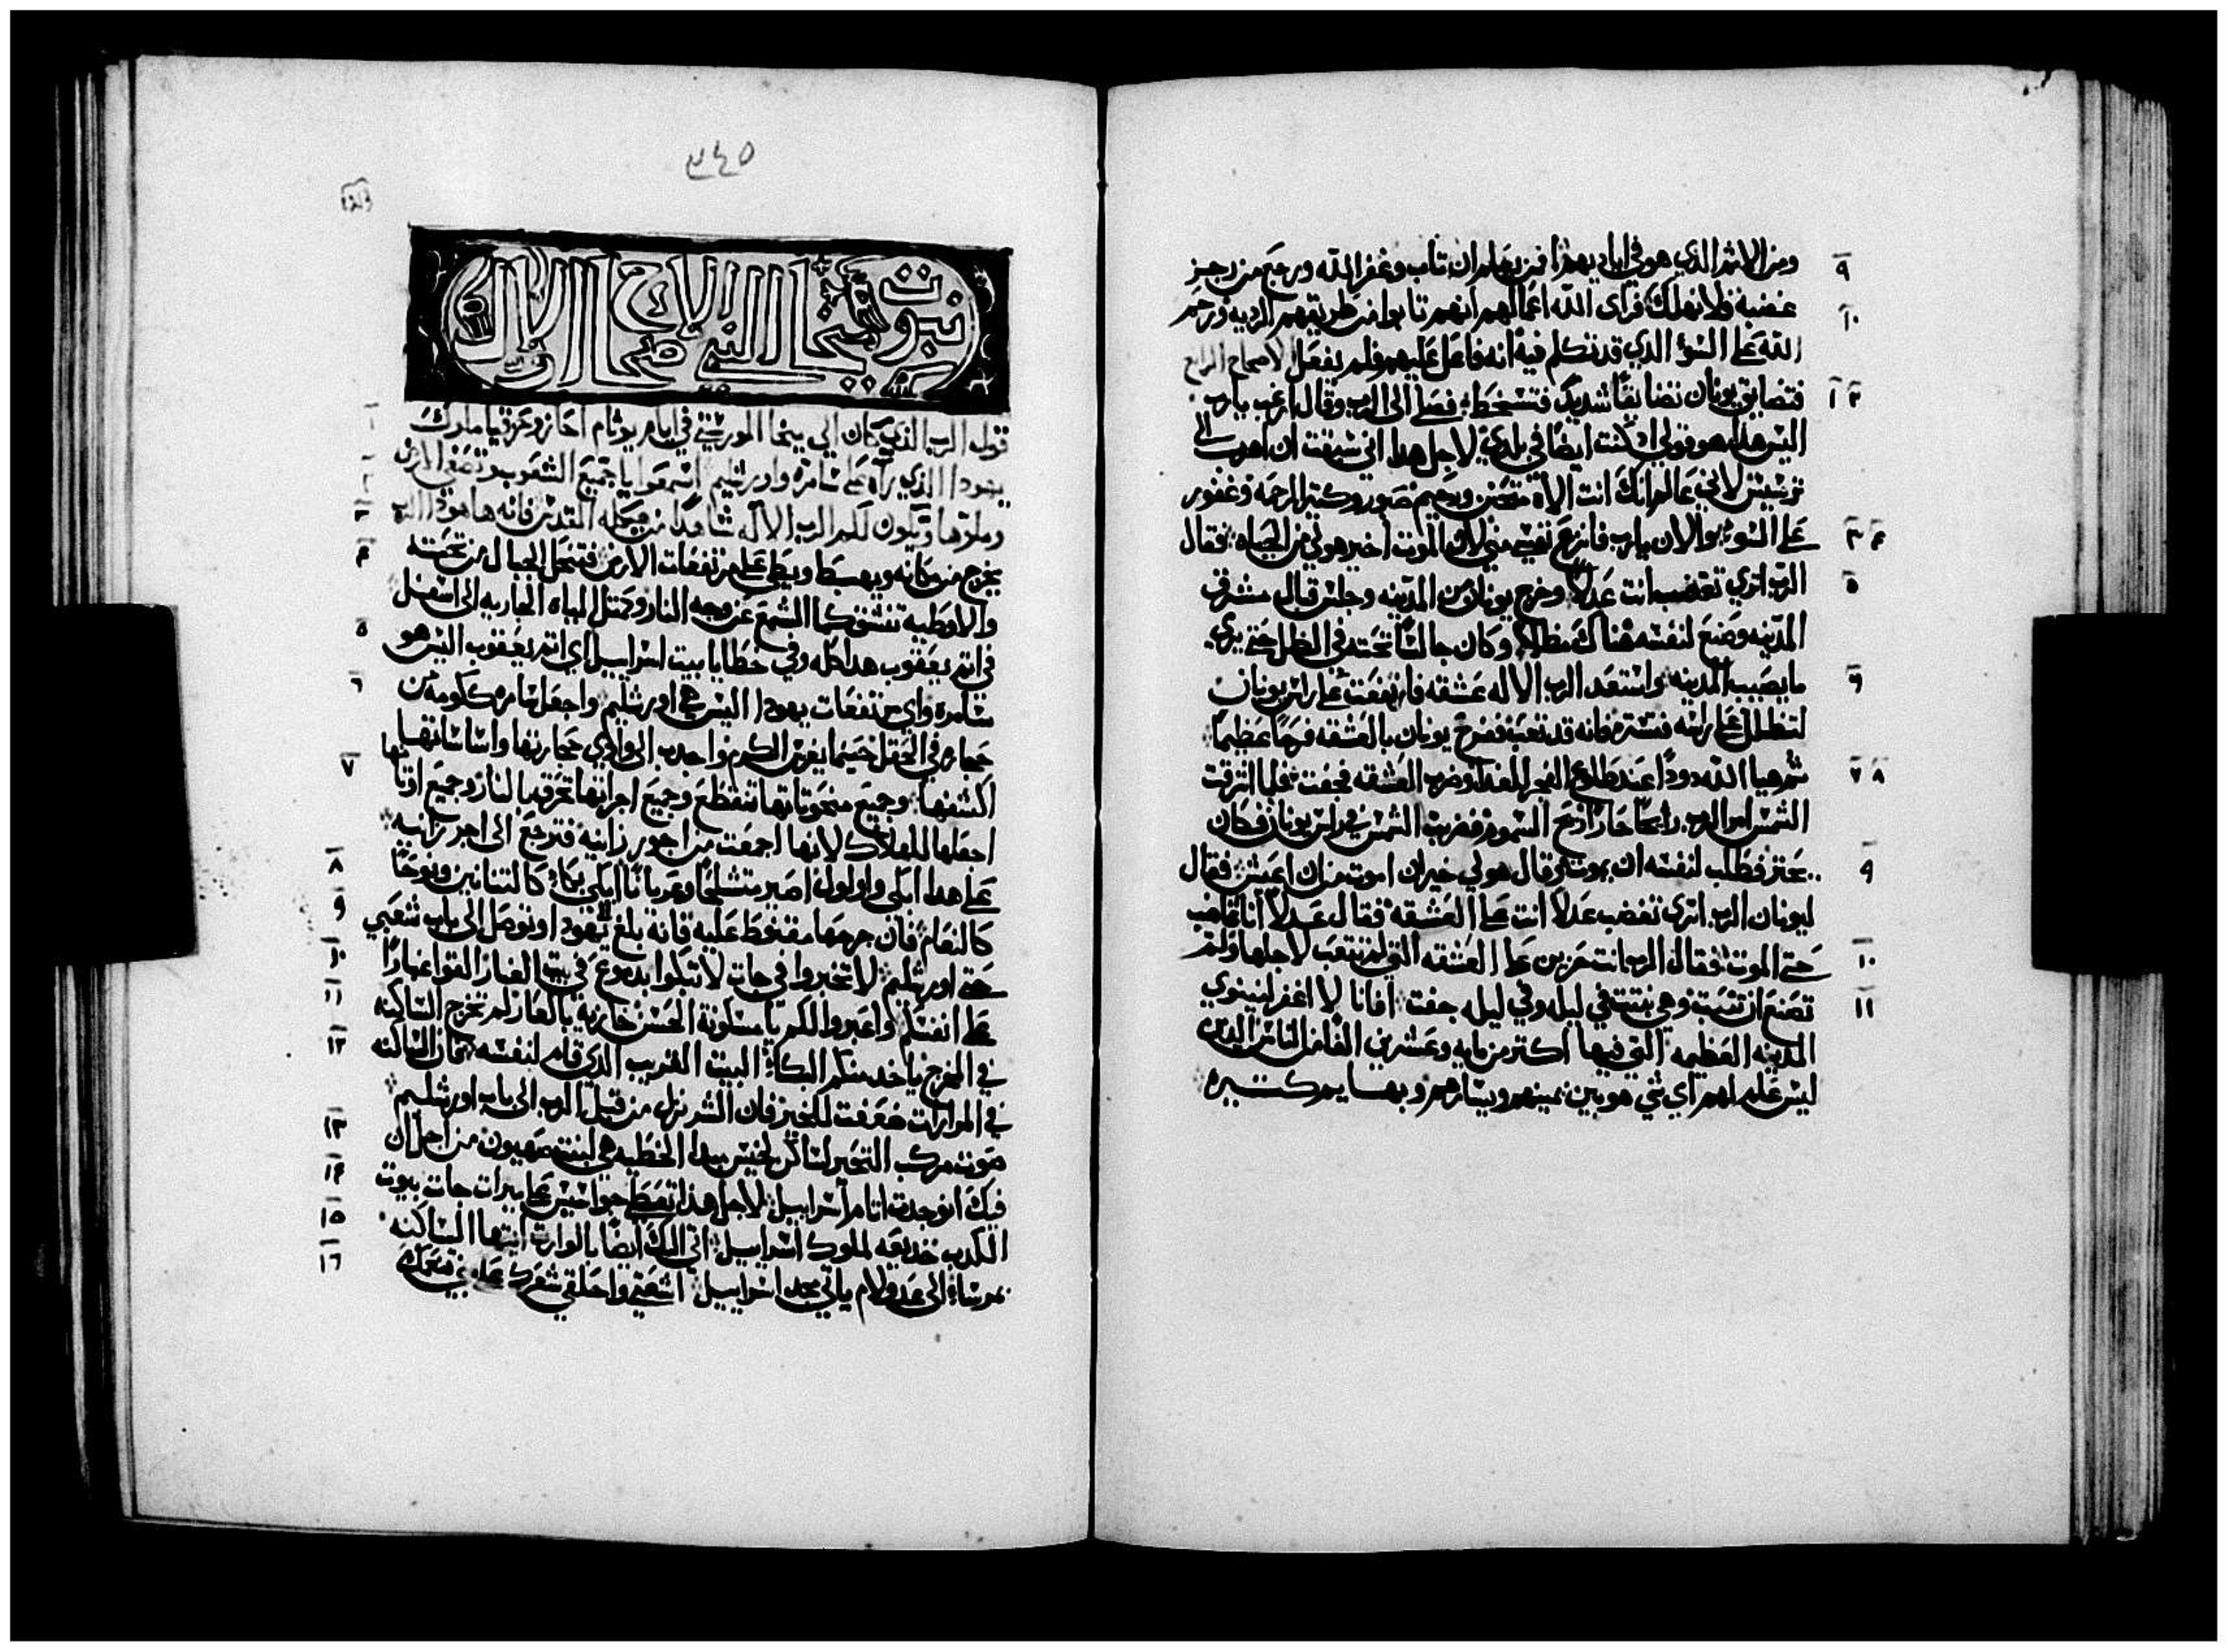 ٩ ومن الاثم الذي هو في اياديهم فمن يعلم ان تاب وغفر الله ورجع من رجز
١٠ غضبه فلا نهلك فراى الله اعمالهم انهم تابوا من طريقهم الرديه ورحم
الله على السوء الذي قد تكلم فيه انه فاعل عليهم فلم يفعل الاصحاح الرابع
١ ٢ فتضايق يونان تضايقًا شديدًا فتسخط فصلى الى الرب وقال ارغب يارب
اليس هذا هو قولي اذ كنت ايضًا في بلدي لاجل هذا اني سبقت ان اهرب الى
ترشيش لاني عالم انك انت الاه متحنن ورحيم صبور وكتير الرحمه وغفور
٣ ٤ على السوء والان يارب فانزع نفسي مني لان الموت اخير هو لي من الحياه فقال
٥ الرب اترى تغضب انت عدلاً وخرج يونان من المدينه وجلس قبال مشرق
المدينه وصنع لنفسه هناك مظله وكان جالسًا تحته في الظل حتى يرى
٦ ما يصيب المدينه واستعد الرب الاله عشقه فارتفعت على راس يونان
لتظلل على راسه فتستره فانه قد تعب ففرح يونان بالعشقه فرحًا عظيمًا
٧ ٨ تم هيا الله دودًا عند طلوع الفجر للغد وضرب العشقه فجفت فلما اشرقت
الشمس امر الرب رايحًا حارًا السموم فضربت الشمس في راس يونان فكان
٩ يحتر فطلب لنفسه ان يموت وقال هو لي خير ان اموت من ان اعيش فقال
ليونان الرب اترى تغضب عدلاً انت على العشقه فقال عدلاً انا غاضب
١٠ حتى الموت فقال الرب انت حزين على العشقه التي لم تتعب لاجلها ولم
١١ تصنع ان تنبت وهي نبتت في ليله وفي ليله جفت افانا لا اغفر لنينوي
المدينه العظيمه التي فيها اكتر من مايه وعشرين الفًا من الناس الذين
ليس علم لهم اي شي هو بين يمينهم ويسارهم وبهايم كتيره
٣٤٥
نبوت ميخا النبي الاصحاح الاول
١ قول الرب الذي كان الى ميخا المورشتي في ايام يوثام احاز وحزقيا ملوك
٢ يهودا الذي رآه على سامره واورشليم اسمعوا يا جميع الشعوب وتصغ الارض
٣ وملوها ويكون لكم الرب الاله شاهدًا من هيكله المقدس فانه هاهوذا الرب
٤ يخرج من مكانه ويهبط ويطى على مرتفعات الارض فتنحل الجبال من تحته
والاوطيه تنشق كما الشمع عن وجه النار ومثل المياه الجاريه الى اسفل
٥ في اتم يعقوب هدا كله وفي خطايا بيت اسراييل اي اتم يعقوب اليس هو
٦ سامره واي مرتفعات يهودا اليس هي اورشليم واجعل سامره ككومه من
حجاره في الحقل حينما يغرس الكرم واحدب الى الوادي حجارتها واساساتها
٧ اكشفها وجميع منحوتاتها تنقطع وجميع اجراتها تحرق بالنار وجميع اوتانها
اجعلها للهلاك لانها اجمعت من اجور زانيه فترجع الى اجر زانيه
٨ على هدا ابكي واولول اصير متشلحًا وعريانًا ابكي بكاء كالتنانين ونوحًا
٩ كالنعام فان جرحها مقنوط عليه فانه بلغ ليهودا وتوصل الى باب شعبي
١٠ حتى اورشليم لا تخبروا في جات لا تبكوا بدموع في بيت الغبار القوا غبارًا
١١ على انفسكم واعبروا لكم يا مسكونة الحسن خازية بالعار لم تخرج الساكنه
١٢ في المخرج ياخد منكم البكاء البيت القريب الذي قام لنفسه الساكنه
في المرارات ضعفت للخير فان الشر نزل من قبل الرب الى باب اورشليم
١٣ صوت مركب التحير لساكن لخيش مبدا الخطيه هي لبنت صهيون من اجل ان
١٤ فيك انوجدت اتام اسراييل لاجل هذا تعطي جواسيس على ميرات جات بيوت
١٥ الكدب خديعه لملوك اسراييل اتي اليك ايضًا بالوارت ايتها الساكنه
١٦ بمرسا الى عدولام ياتي مجد اسراييل اشعتي واحلقي شعرك على بني نعمك